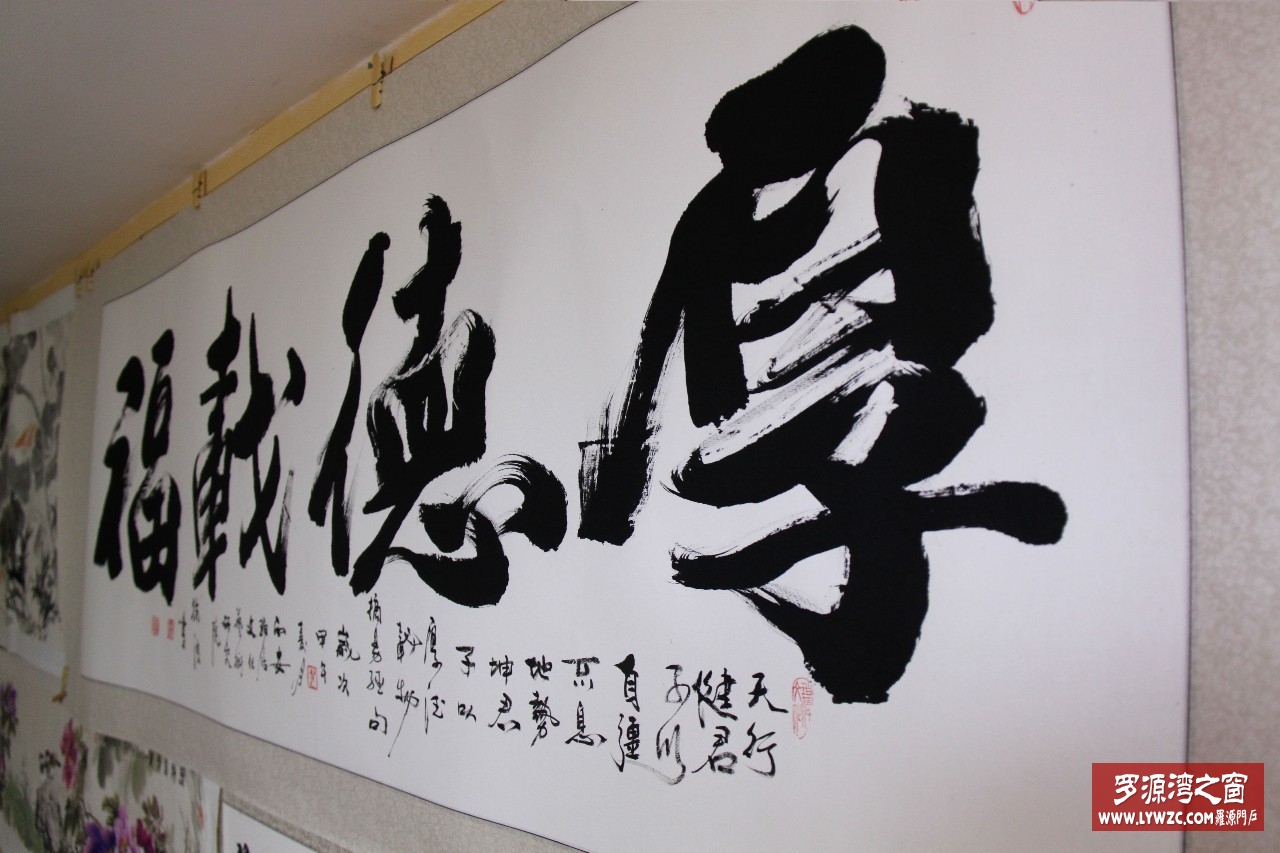 厚德載福
天行
健君
子以
自彊
不息
地勢
坤君
子以
厚德
載物
摘易經句
歲次
甲午
夏月
西安
文化
藝術
研究
院
書
罗源湾之窗
WWW.LYWZC.COM羅源門戶